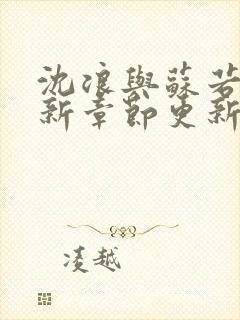 沈浪與蘇若
新章節更新
凌越